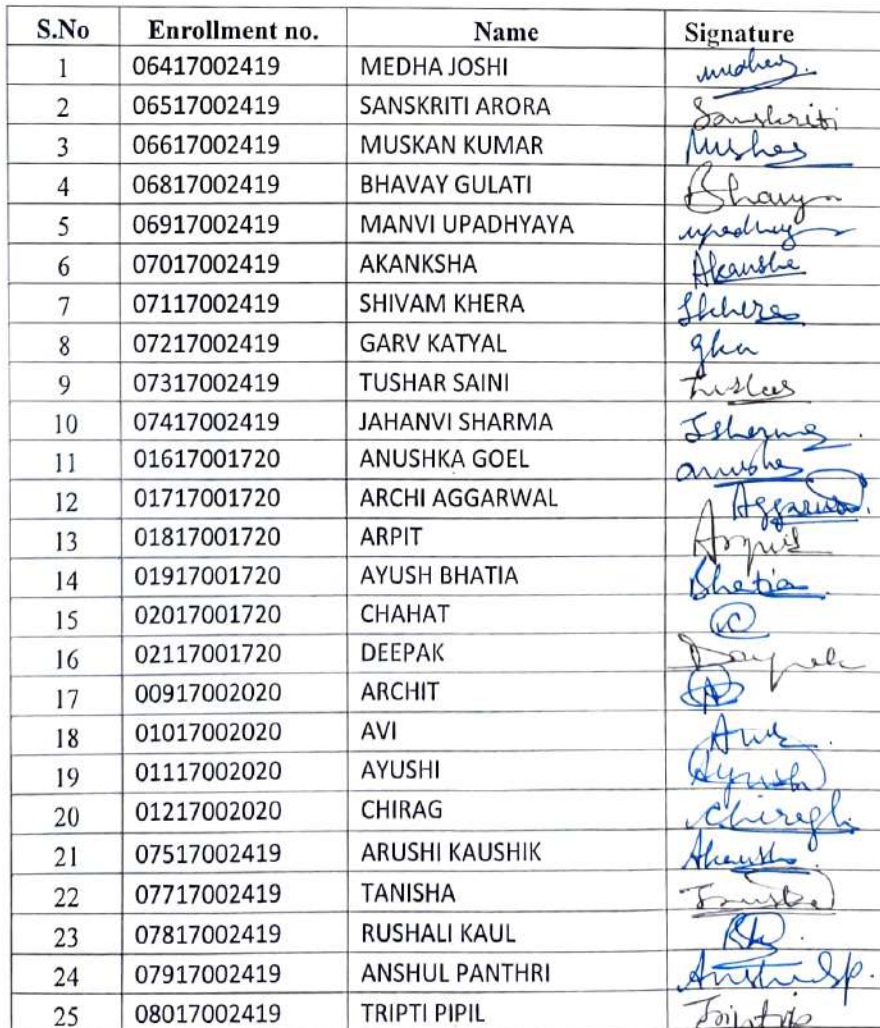 S.No Enrollment no. Name Signature
1 06417002419 MEDHA JOSHI
2 06517002419 SANSKRITI ARORA Sanskriti
3 06617002419 MUSKAN KUMAR
4 06817002419 BHAVAY GULATI
5 06917002419 MANVI UPADHYAYA
6 07017002419 AKANKSHA
7 07117002419 SHIVAM KHERA
8 07217002419 GARV KATYAL
9 07317002419 TUSHAR SAINI
10 07417002419 JAHANVI SHARMA
11 01617001720 ANUSHKA GOEL
12 01717001720 ARCHI AGGARWAL
13 01817001720 ARPIT
14 01917001720 AYUSH BHATIA Bhatia
15 02017001720 CHAHAT C
16 02117001720 DEEPAK
17 00917002020 ARCHIT A
18 01017002020 AVI
19 01117002020 AYUSHI
20 01217002020 CHIRAG
21 07517002419 ARUSHI KAUSHIK
22 07717002419 TANISHA
23 07817002419 RUSHALI KAUL
24 07917002419 ANSHUL PANTHRI
25 08017002419 TRIPTI PIPIL